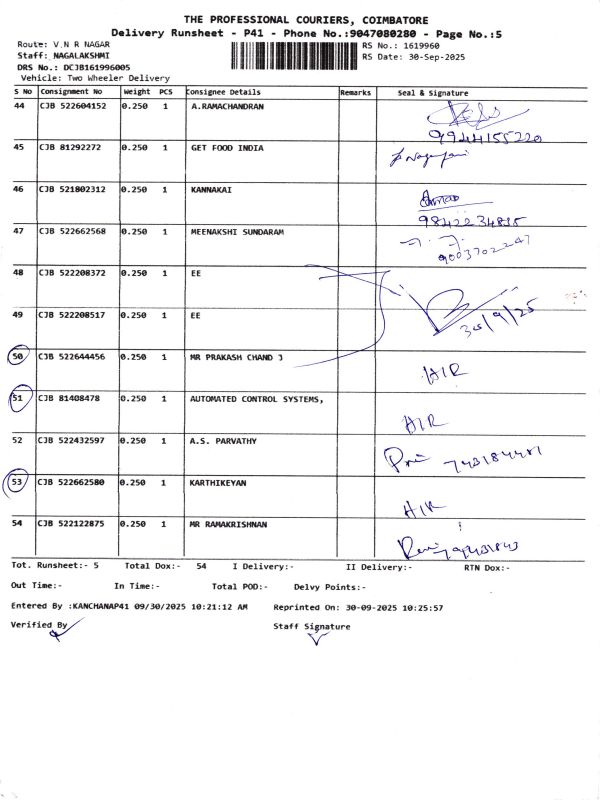 THE PROFESSIONAL COURIERS, COIMBATORE
Delivery Runsheet - P41 - Phone No.:9047080280 - Page No.:5
Route: V.N R NAGAR RS No.: 1619960
Staff: NAGALAKSHMI RS Date: 30-Sep-2025
DRS No.: DCJB161996005
Vehicle: Two Wheeler Delivery
S No Consignment No Weight PCS Consignee Details Remarks Seal & Signature
44 CJB 522604152 0.250 1 A.RAMACHANDRAN
9944155220
45 CJB 81292272 0.250 1 GET FOOD INDIA
46 CJB 521802312 0.250 1 KANNAKAI
47 CJB 522662568 0.250 1 MEENAKSHI SUNDARAM
9003702247
48 CJB 522208372 0.250 1 EE
49 CJB 522208517 0.250 1 EE
30/9/25
50 CJB 522644456 0.250 1 MR PRAKASH CHAND J
H/R
51 CJB 81408478 0.250 1 AUTOMATED CONTROL SYSTEMS,
H/R
52 CJB 522432597 0.250 1 A.S. PARVATHY
53 CJB 522662580 0.250 1 KARTHIKEYAN
H/R
54 CJB 522122875 0.250 1 MR RAMAKRISHNAN
Tot. Runsheet:- 5 Total Dox:- 54 I Delivery:- II Delivery:- RTN Dox:-
Out Time:- In Time:- Total POD:- Delvy Points:-
Entered By :KANCHANAP41 09/30/2025 10:21:12 AM Reprinted On: 30-09-2025 10:25:57
Verified By Staff Signature